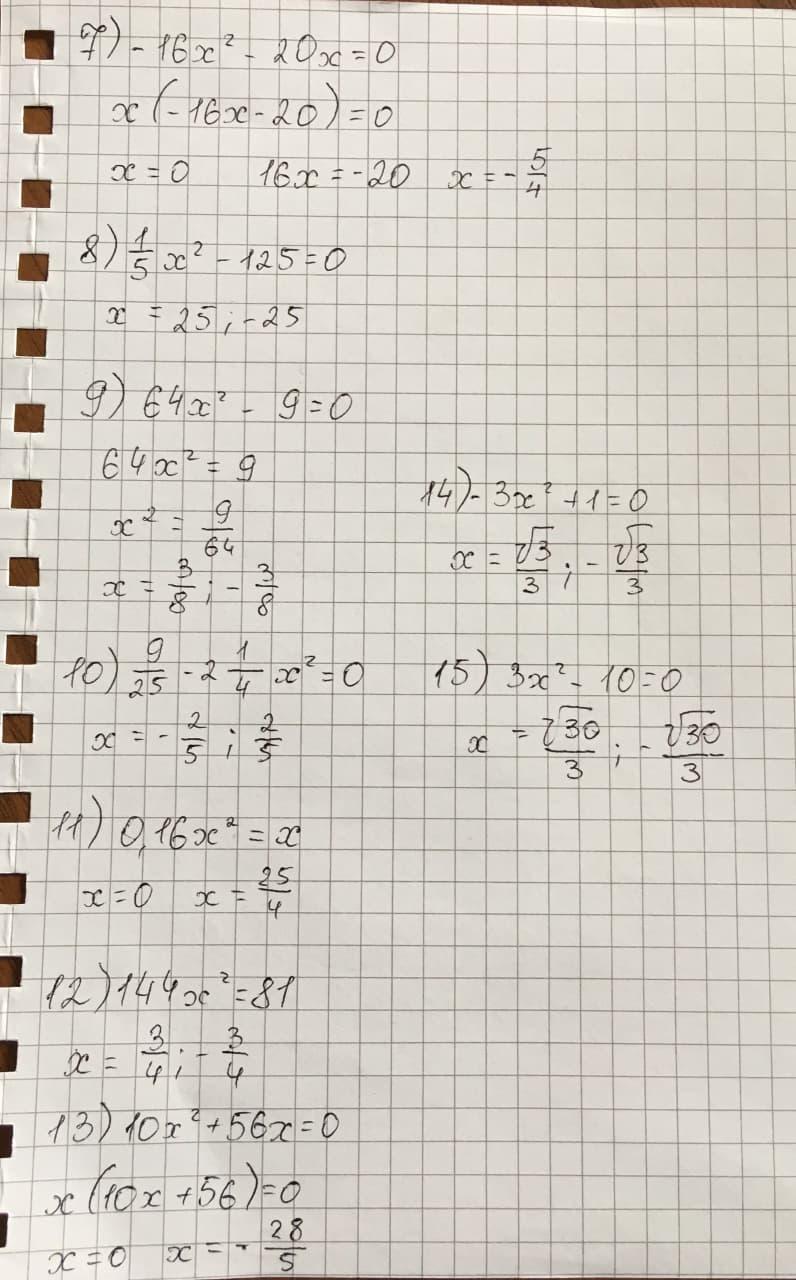 7) -16x² - 20x = 0
x(-16x - 20) = 0
x = 0 16x = -20 x = -5/4
8) 1/5 x² - 125 = 0
x = 25 ; -25
9) 64x² - 9 = 0
64x² = 9
x² = 9/64
x = 3/8 ; - 3/8
10) 9/25 - 2 1/4 x² = 0
x = - 2/5 ; 2/5
11) 0,16x² = x
x = 0 x = 25/4
12) 144x² = 81
x = 3/4 ; - 3/4
13) 10x² + 56x = 0
x(10x + 56) = 0
x = 0 x = - 28/5
14) - 3x² + 1 = 0
x = √3/3 ; - √3/3
15) 3x² - 10 = 0
x = √30/3 ; - √30/3